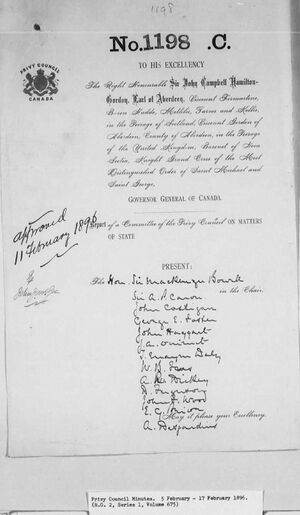 1198
No. 1198 .C.
PRIVY COUNCIL
CANADA
TO HIS EXCELLENCY
The Right Honourable Sir John Campbell Hamilton-
Gordon, Earl of Aberdeen; Viscount Formartine,
Baron Haddo, Methlic, Tarves and Kellie,
in the Peerage of Scotland; Viscount Gordon of
Aberdeen, County of Aberdeen, in the Peerage
of the United Kingdom; Baronet of Nova
Scotia, Knight Grand Cross of the Most
Distinguished Order of Saint Michael and
Saint George,
GOVERNOR GENERAL OF CANADA.
approved
11 February 1896
Report of a Committee of the Privy Council on MATTERS
OF STATE
PRESENT:
The Hon. Sir Mackenzie Bowell
in the Chair.
Sir A. P. Caron
John Costigan
George E. Foster
John Haggart
J. A. Ouimet
T. Mayne Daly
W. B. Ives
A. R. Dickey
D. Ferguson
John F. Wood
E. G. Prior
May it please your Excellency.
A. Desjardins
Privy Council Minutes. 5 February - 17 February 1896.
(R.G. 2, Series 1, Volume 675)